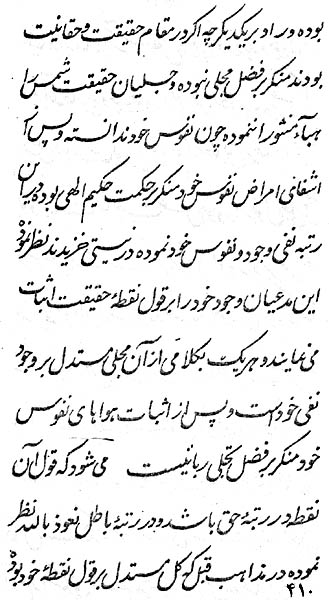 بوده و راد بر یکدیگر چه اگر در مقام حقیقت و حقانیت
بودند منکر بر فضل مجلی نبوده و جلیان حقیقت شمس را
هباء منثورا ننموده چون نفوس خود ندانسته و پس از
اشفای امراض نفوس خود منکر بر حکمت حکیم الهی بوده در این
رتبه نفی وجود و نفوس خود نموده در نیستی خزیدند نظر نموده
این مدعیان وجود خود را بر قول نقطهٔ حقیقت اثبات
می نمایند و هر یک بکلامی از آن مجلی مستدل بر وجود
نفی خود است و پس از اثبات هواهای نفوس
خود منکر بر فضل تجلی ربانیست می شود که قول آن
نقطه در رتبهٔ حق باشد و در رتبهٔ باطل نعوذ بالله نظر
نموده در مذاهب قبل که کل مستدل بر قول نقطهٔ خود بوده
۴۱۰